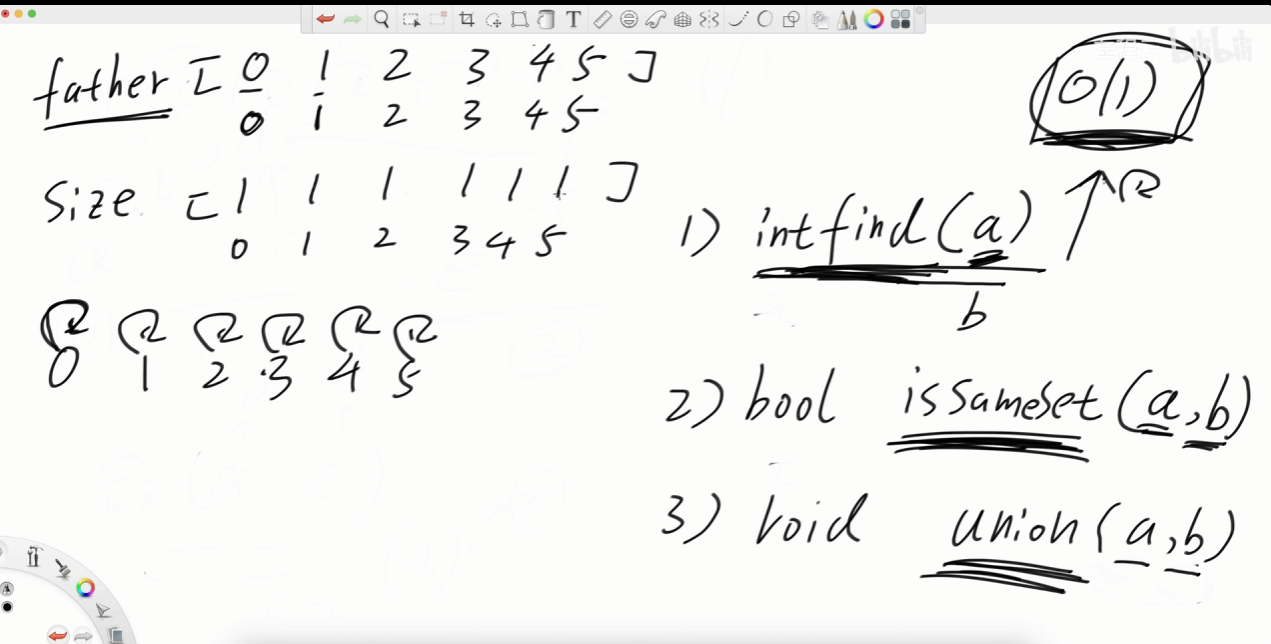 father [ 0 1 2 3 4 5 ]
0 1 2 3 4 5
size [ 1 1 1 1 1 1 ]
0 1 2 3 4 5
0 1 2 3 4 5
O(1)
1) int find(a)
b
2) bool isSameSet(a,b)
3) void union(a,b)
bilibili